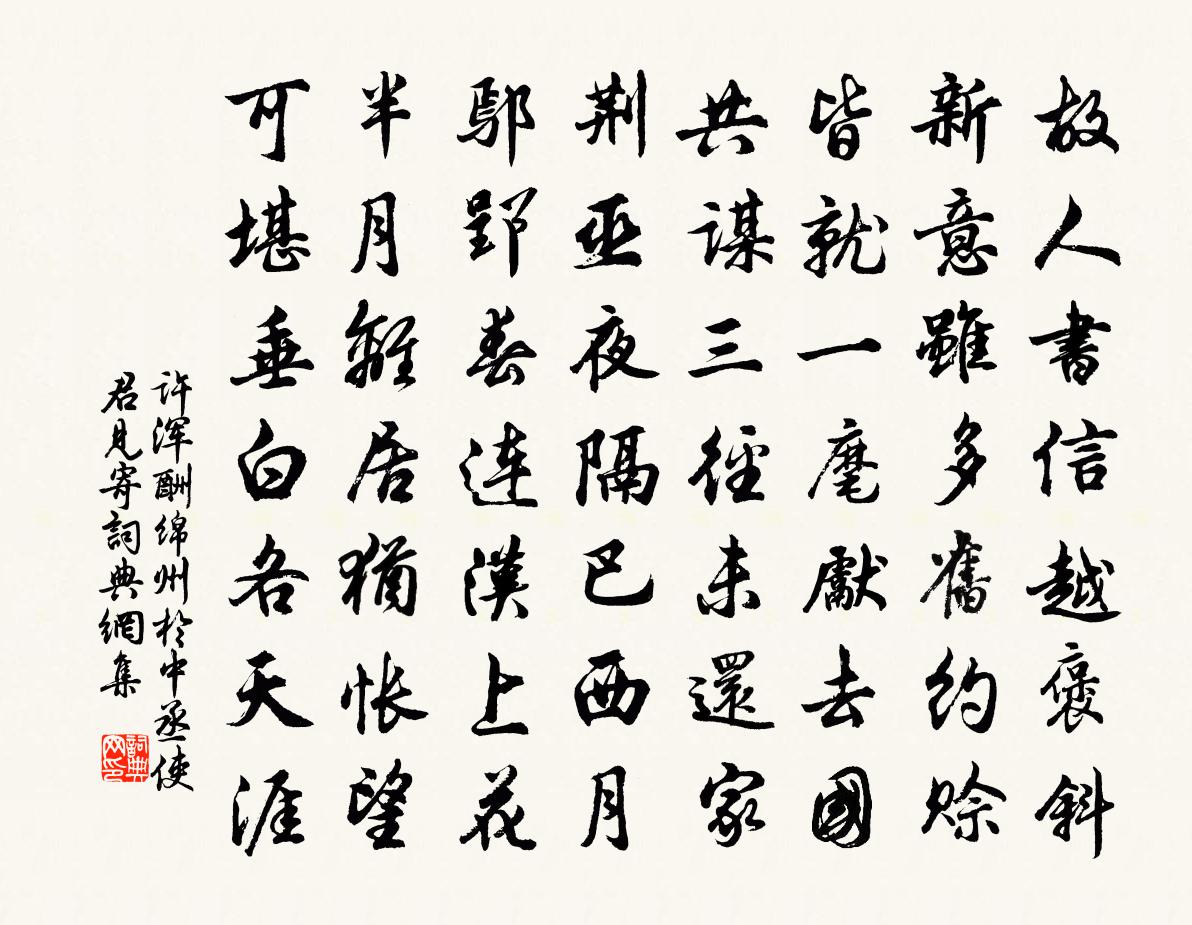 故人書信越褒斜
新意雖多舊約賒
皆就一麾獻去國
共謀三徑未還家
荆巫夜隔巴西月
鄢郢春連漢上花
半月離居猶悵望
可堪垂白各天涯
许浑酬绵州於中丞使
君見寄詞典網集
詞典
网印